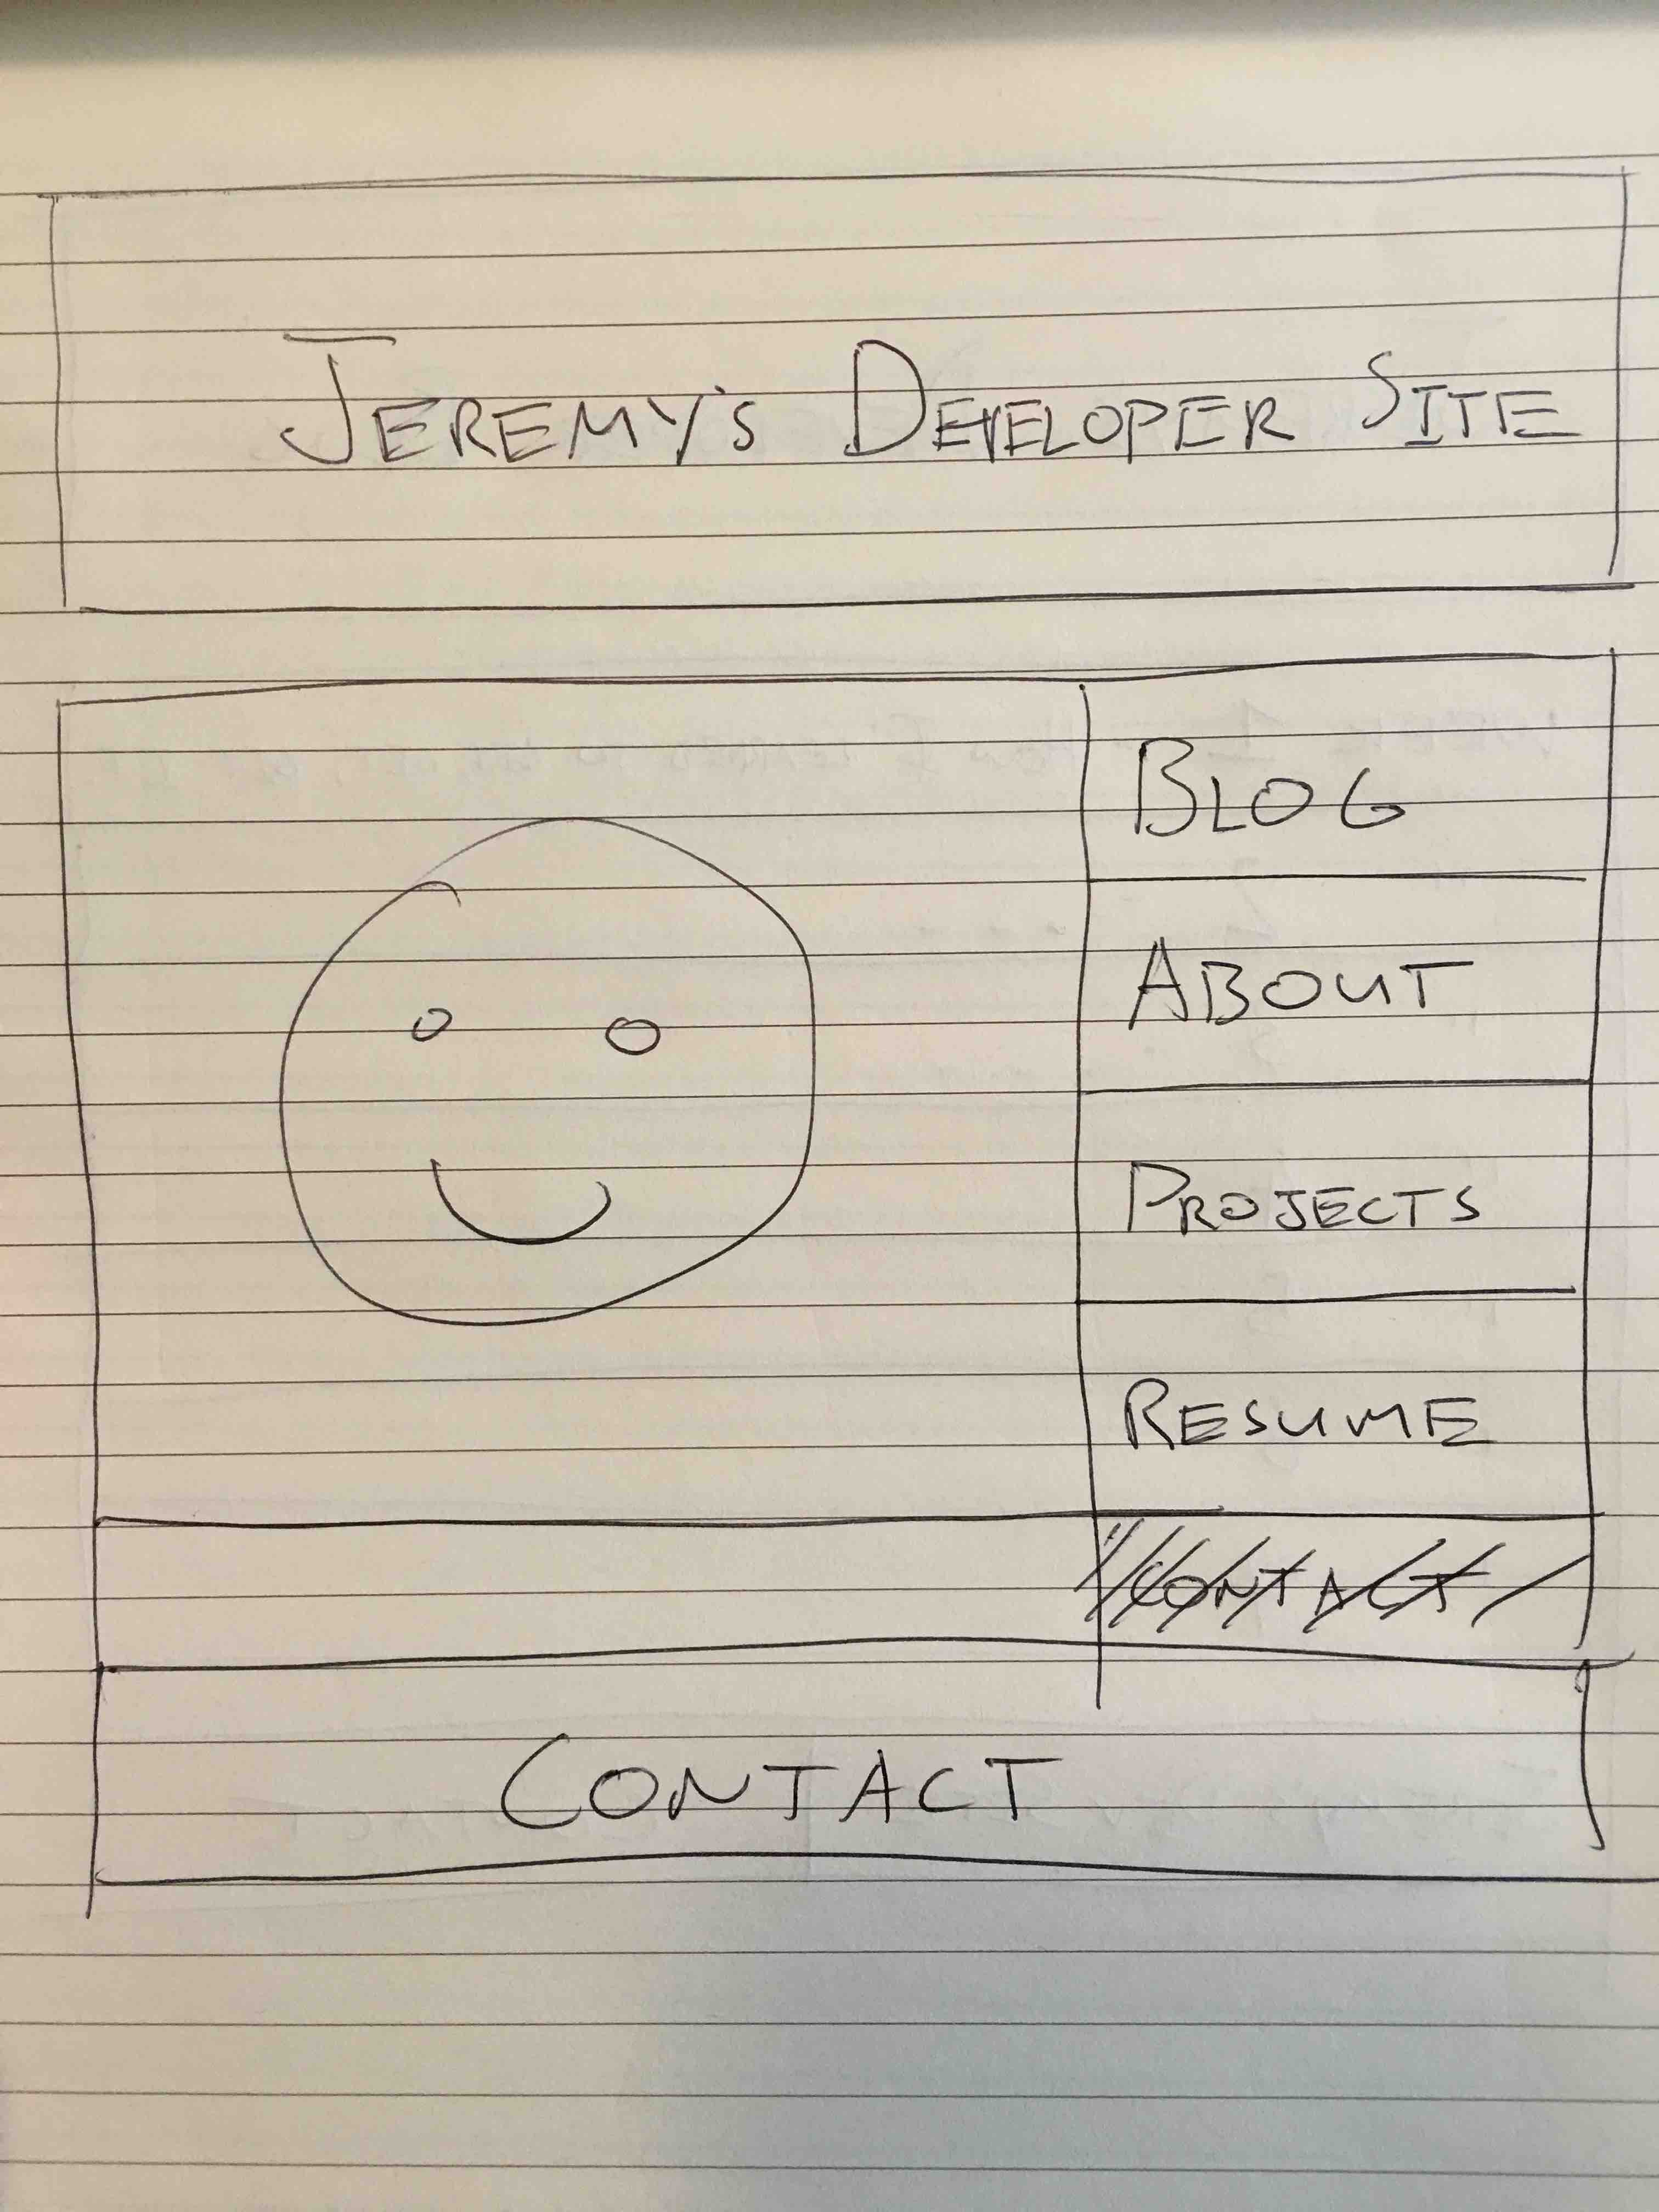 JEREMY'S DEVELOPER SITE
BLOG
ABOUT
PROJECTS
RESUME
CONTACT
CONTACT